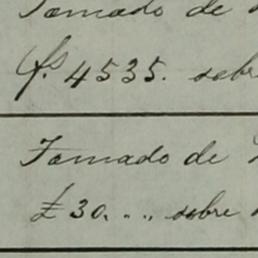 Tomado de
fs. 4535. sobre
Tomado de
£ 30. „ „ sobre